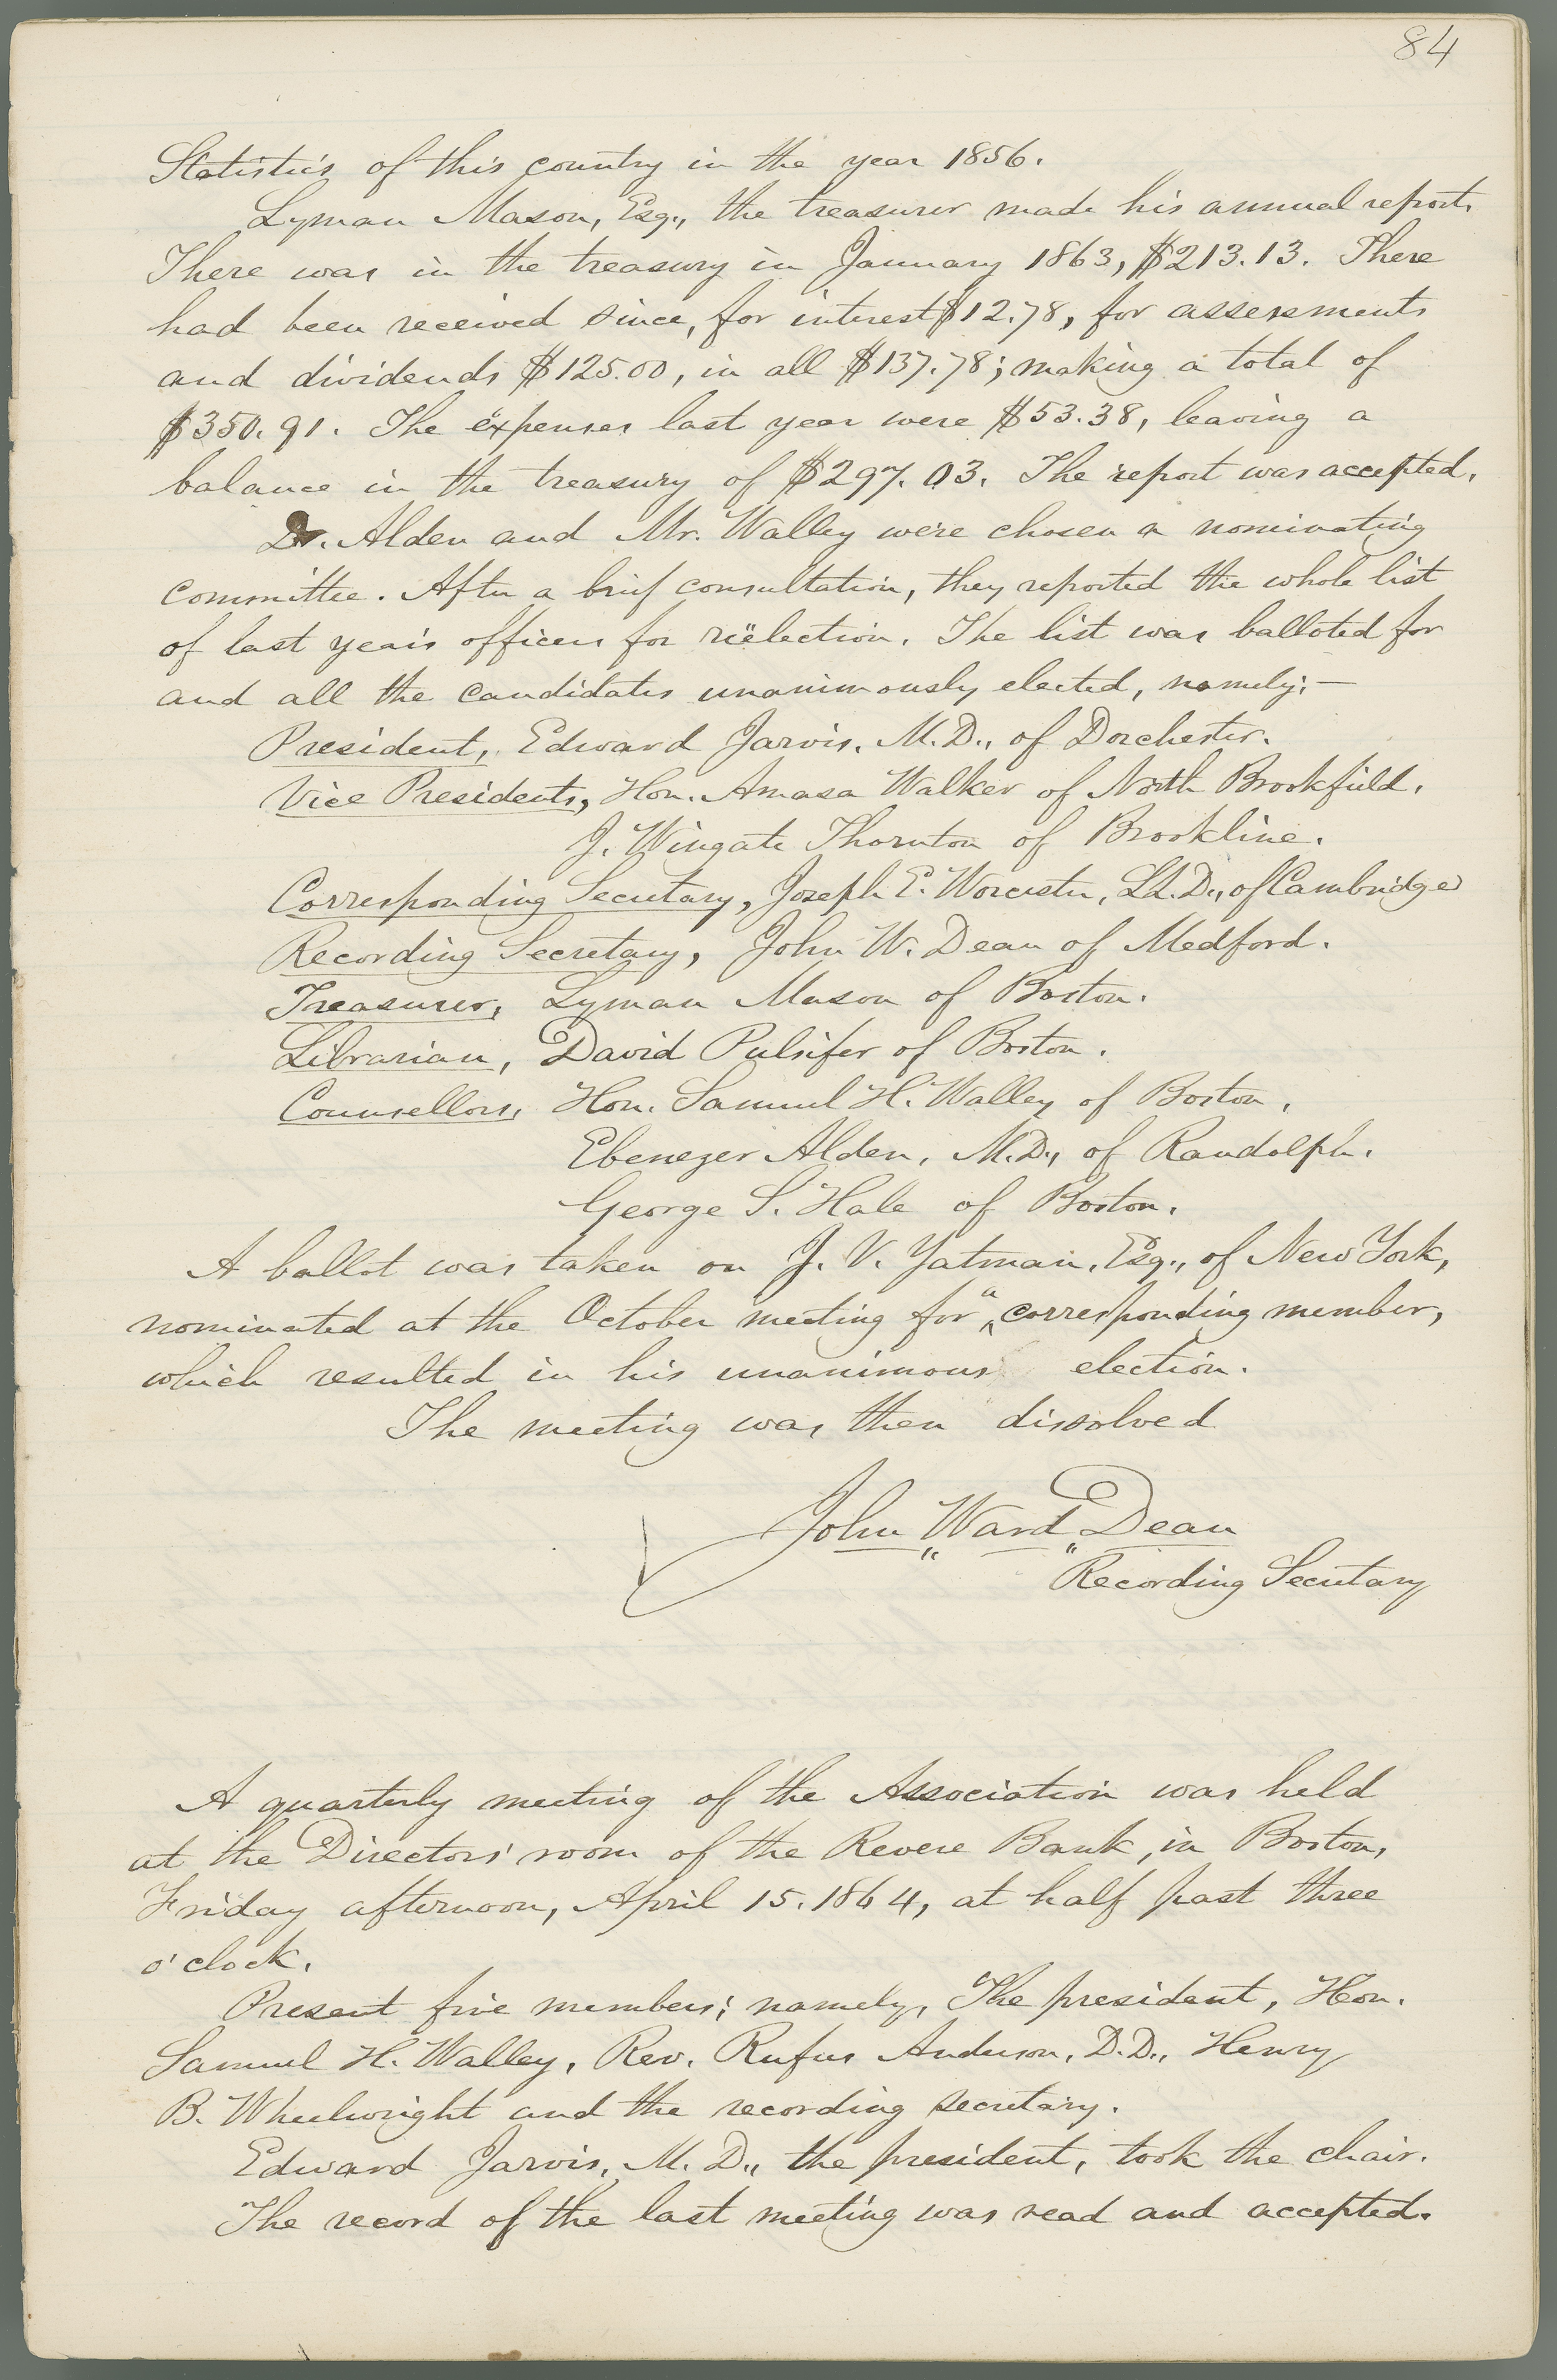 84
Statistics of this country in the year 1856.
Lyman Mason, Esq., the treasurer made his annual report.
There was in the treasury in January 1863, $213.13. There
had been received since, for interest $12.78, for assessments
and dividends $125.00, in all $137.78; making a total of
$350.91. The expenses last year were $53.38, leaving a
balance in the treasury of $297.03. The report was accepted.
Dr. Alden and Mr. Walley were chosen a nominating
committee. After a brief consultation, they reported the whole list
of last year's officers for reëlection. The list was balloted for
and all the candidates unanimously elected, namely:—
President, Edward Jarvis, M.D., of Dorchester.
Vice Presidents, Hon. Amasa Walker of North Brookfield.
J. Wingate Thornton of Brookline.
Corresponding Secretary, Joseph E. Worcester, LL.D., of Cambridge
Recording Secretary, John W. Dean of Medford.
Treasurer, Lyman Mason of Boston.
Librarian, David Pulsifer of Boston.
Counsellors, Hon. Samuel H. Walley of Boston.
Ebenezer Alden, M.D., of Randolph.
George S. Hale of Boston.
A ballot was taken on J. V. Yatman, Esq., of New York,
nominated at the October meeting for a corresponding member,
which resulted in his unanimous election.
The meeting was then dissolved
John Ward Dean
Recording Secretary
A quarterly meeting of the Association was held
at the Directors' room of the Revere Bank, in Boston,
Friday afternoon, April 15. 1864, at half past three
o'clock.
Present five members; namely, The president, Hon.
Samuel H. Walley, Rev. Rufus Anderson, D.D., Henry
B. Wheelwright and the recording secretary.
Edward Jarvis, M.D., the president, took the chair.
The record of the last meeting was read and accepted.